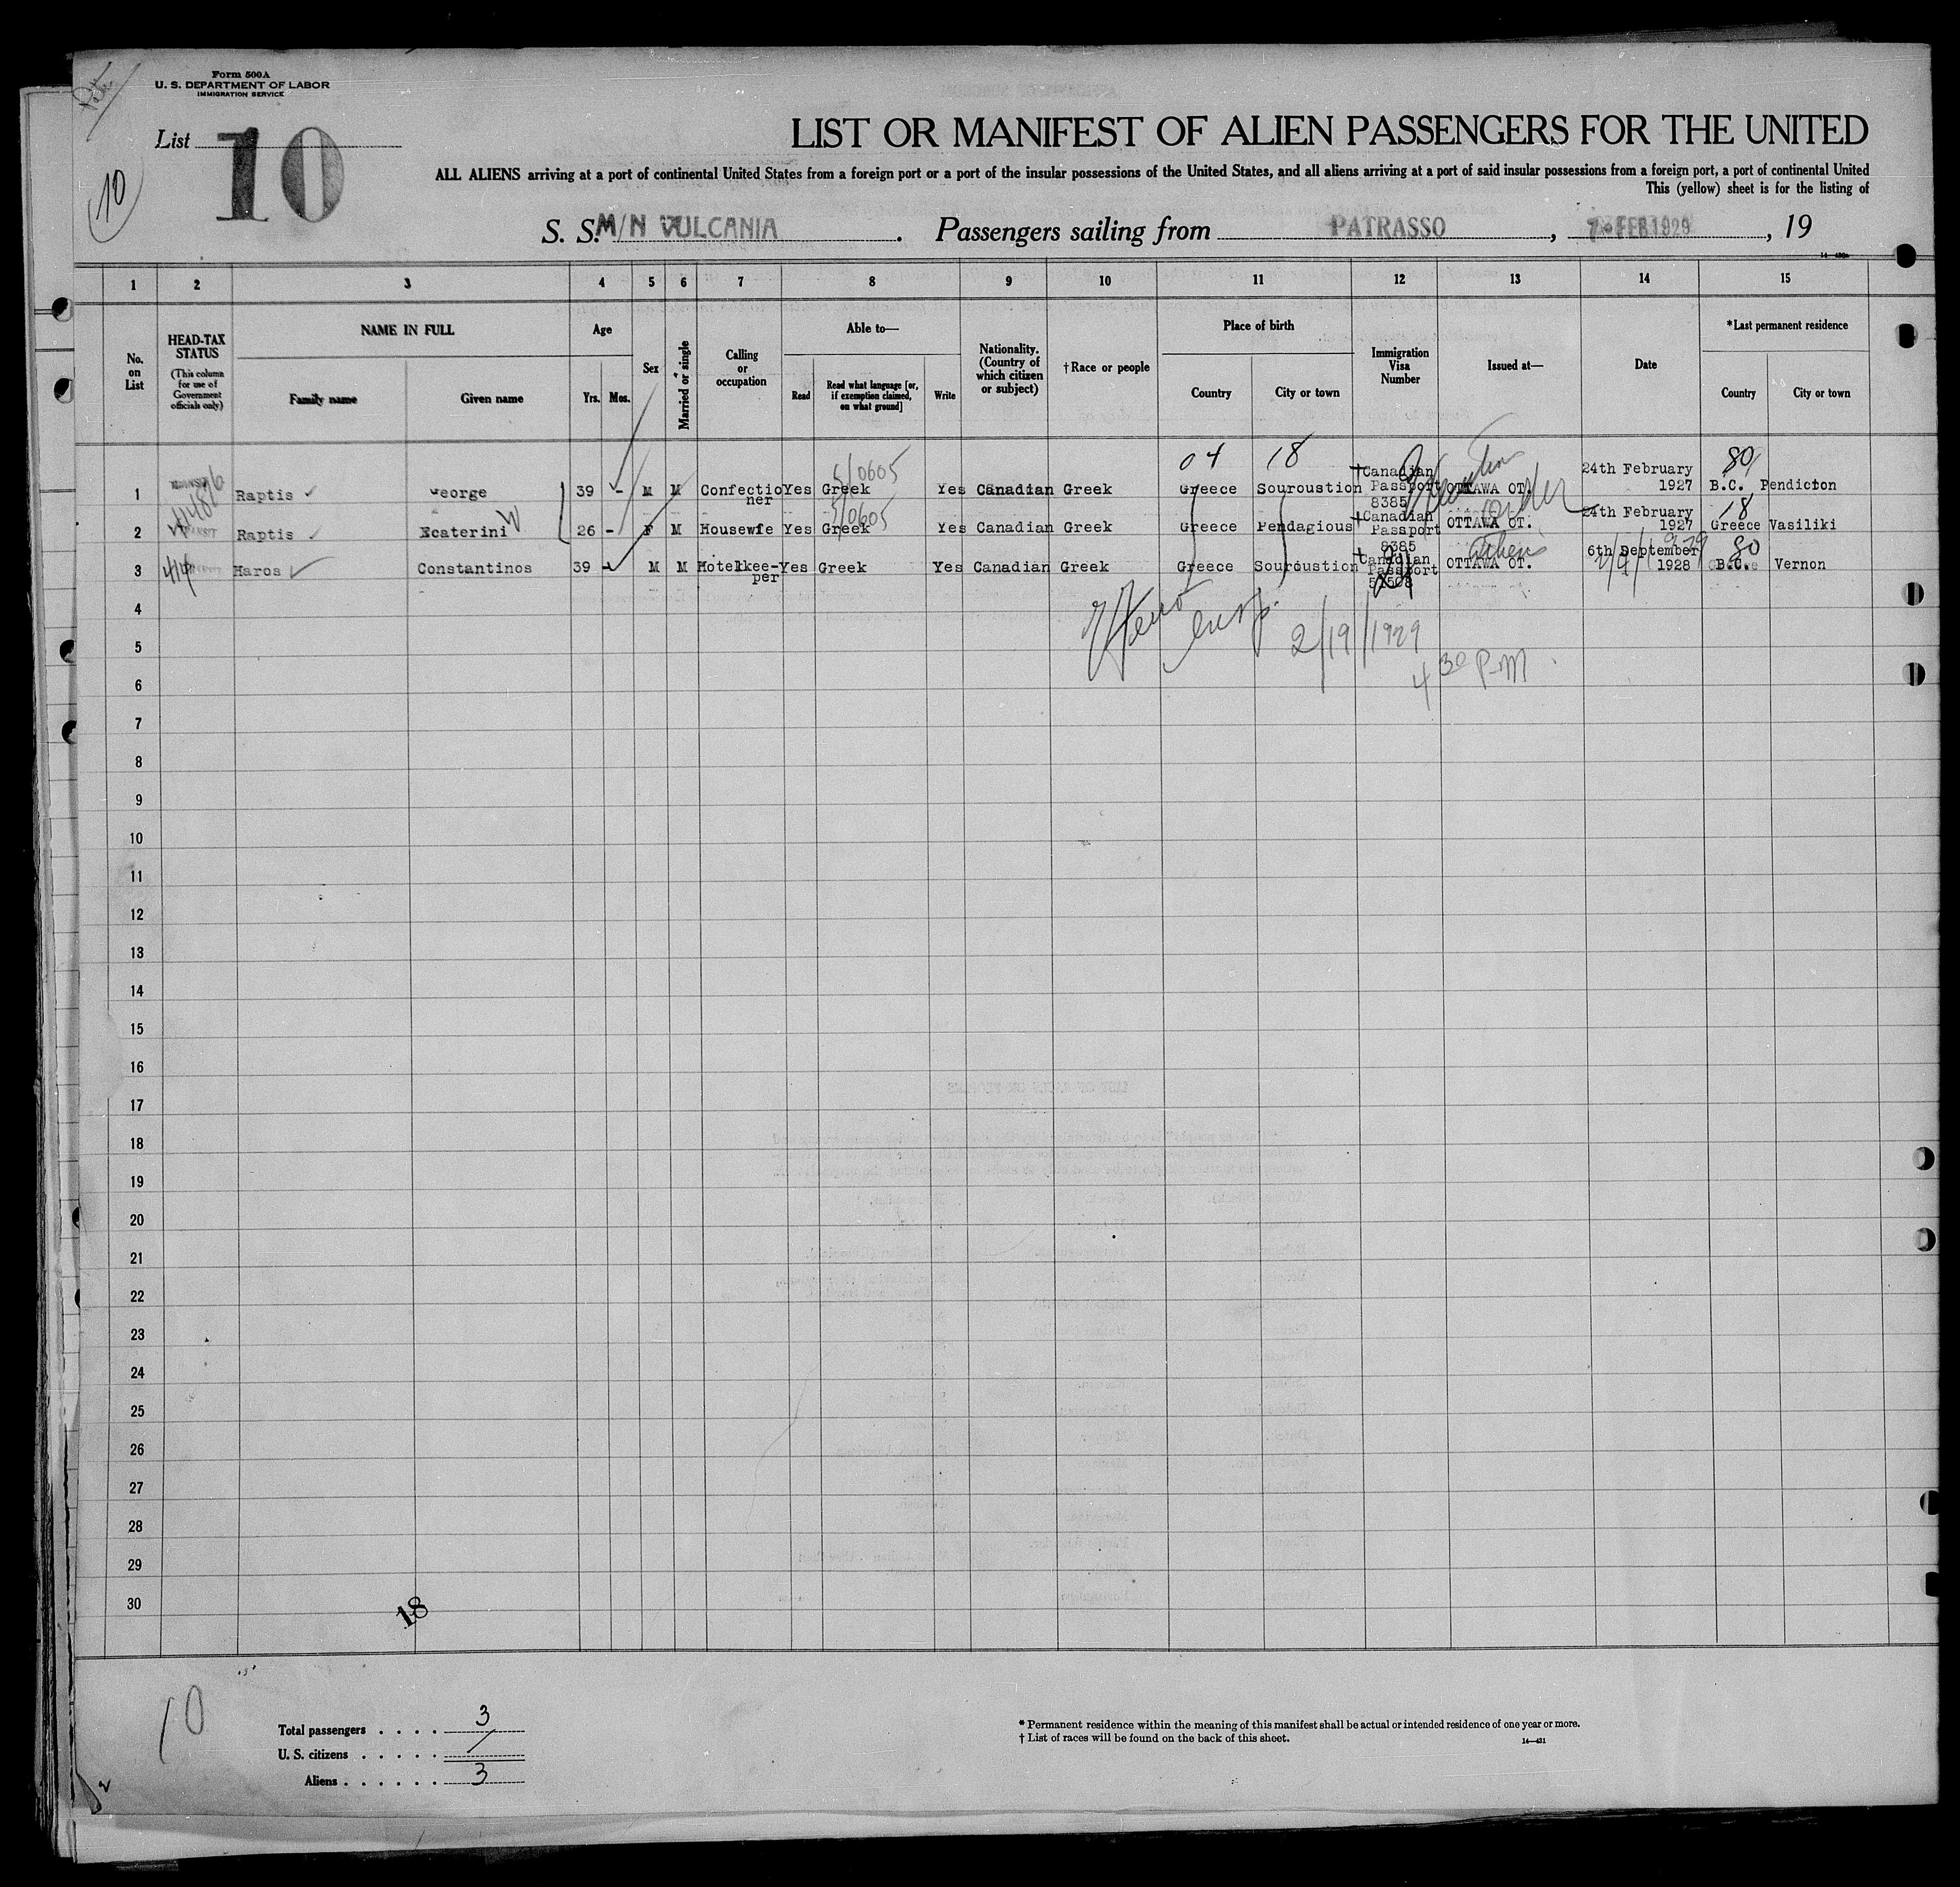 Form 500A
U. S. DEPARTMENT OF LABOR
IMMIGRATION SERVICE
List 10
10
LIST OR MANIFEST OF ALIEN PASSENGERS FOR THE UNITED
ALL ALIENS arriving at a port of continental United States from a foreign port or a port of the insular possessions of the United States, and all aliens arriving at a port of said insular possessions from a foreign port, a port of continental United
This (yellow) sheet is for the listing of
S. S. M/N VULCANIA. Passengers sailing from PATRASSO, 7 FEB 1929, 19
1 2 3 4 5 6 7 8 9 10 11 12 13 14 15
No. on List
HEAD-TAX STATUS
(This column for use of Government officials only)
NAME IN FULL
Family name Given name
Age
Yrs. Mos.
Sex
Married or single
Calling or occupation
Able to—
Read
Read what language [or, if exemption claimed, on what ground]
Write
Nationality. (Country of which citizen or subject)
†Race or people
Place of birth
Country City or town
Immigration Visa Number
Issued at—
Date
*Last permanent residence
Country City or town
04 18 80
5/0605
1 Raptis George 39 - M M Confectioner Yes Greek Yes Canadian Greek Greece Souroustion †Canadian Passport 8385 OTTAWA OT. 24th February 1927 B.C. Pendicton
5/0605 18
2 Raptis Ecaterini W 26 - F M Housewife Yes Greek Yes Canadian Greek Greece Pendagious †Canadian Passport 8385 OTTAWA OT. 24th February 1927 Greece Vasiliki
Athens 80
3 Haros Constantinos 39 - M M Hotelkee-per Yes Greek Yes Canadian Greek Greece Souroustion †Canadian Passport OTTAWA OT. 6th September 1928 B.C. Vernon
4
5
2/19/1929
6
4 30 P.M
7
8
9
10
11
12
13
14
15
16
17
18
19
20
21
22
23
24
25
26
27
28
29
30
18
10
Total passengers . . . . 3
U. S. citizens . . . . . /
Aliens . . . . . . 3
* Permanent residence within the meaning of this manifest shall be actual or intended residence of one year or more.
† List of races will be found on the back of this sheet.
14—431